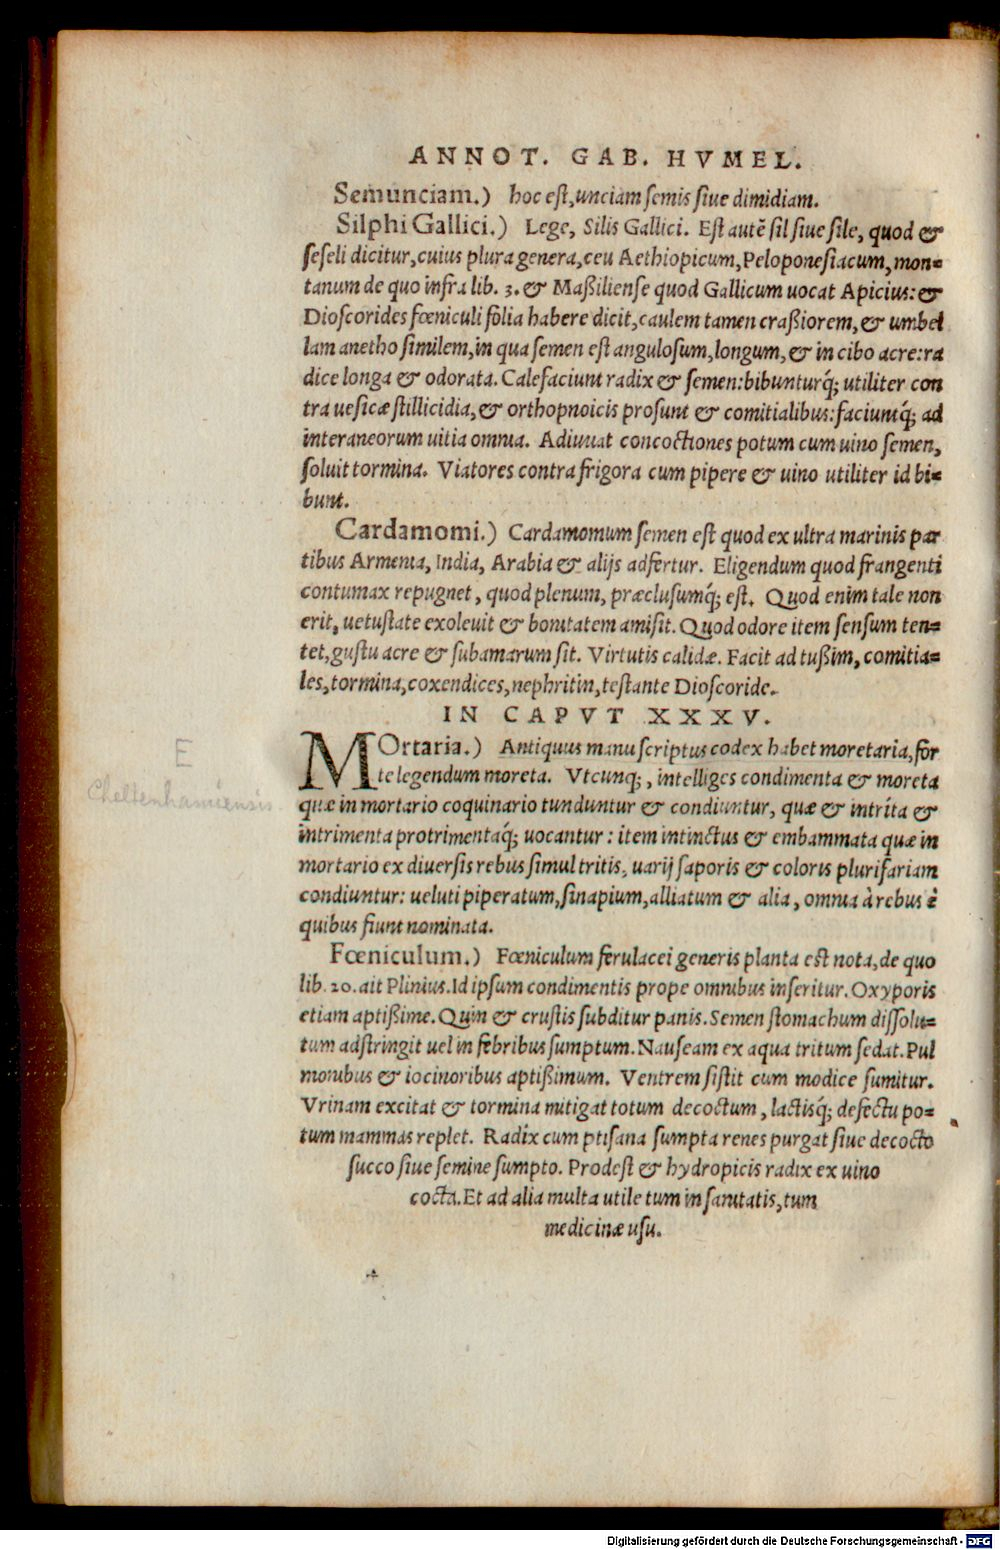 ANNOT. GAB. HVMEL.
Semunciam.) hoc est, unciam semis siue dimidiam.
Silphi Gallici.) Lege, Silis Gallici. Est autē sil siue sile, quod &
seseli dicitur, cuius plura genera, ceu Aethiopicum, Peloponesiacum, mon=
tanum de quo infra lib. 3. & Maßiliense quod Gallicum uocat Apicius: &
Dioscorides fœniculi folia habere dicit, caulem tamen craßiorem, & umbel
lam anetho similem, in qua semen est angulosum, longum, & in cibo acre: ra
dice longa & odorata. Calefaciunt radix & semen: bibunturq́; utiliter con
tra uesicæ stillicidia, & orthopnoicis prosunt & comitialibus: faciuntq́; ad
interaneorum uitia omnia. Adiuuat concoctiones potum cum uino semen,
soluit tormina. Viatores contra frigora cum pipere & uino utiliter id bi=
bunt.
Cardamomi.) Cardamomum semen est quod ex ultra marinis par
tibus Armenia, India, Arabia & alijs adfertur. Eligendum quod frangenti
contumax repugnet, quod plenum, præclusumq́; est. Quod enim tale non
erit, uetustate exoleuit & bonitatem amisit. Quod odore item sensum ten=
tet, gustu acre & subamarum sit. Virtutis calidæ. Facit ad tußim, comitia=
les, tormina, coxendices, nephritin, testante Dioscoride.
IN CAPVT XXXV.
MOrtaria.) Antiquus manu scriptus codex habet moretaria, for
te legendum moreta. Vtcunq;, intelliges condimenta & moreta
quæ in mortario coquinario tunduntur & condiuntur, quæ & intrita &
intrimenta protrimentaq́; uocantur: item intinctus & embammata quæ in
mortario ex diuersis rebus simul tritis, uarij saporis & coloris plurifariam
condiuntur: ueluti piperatum, sinapium, alliatum & alia, omnia à rebus è
quibus fiunt nominata.
Fœniculum.) Fœniculum ferulacei generis planta est nota, de quo
lib. 20. ait Plinius. Id ipsum condimentis prope omnibus inseritur. Oxyporis
etiam aptißime. Quin & crustis subditur panis. Semen stomachum dissolu=
tum adstringit uel in febribus sumptum. Nauseam ex aqua tritum sedat. Pul
monibus & iocinoribus aptißimum. Ventrem sistit cum modice sumitur.
Vrinam excitat & tormina mitigat totum decoctum, lactisq́; defectu po=
tum mammas replet. Radix cum ptisana sumpta renes purgat siue decocto
succo siue semine sumpto. Prodest & hydropicis radix ex uino
cocta. Et ad alia multa utile tum in sanitatis, tum
medicinæ usu.
E
Cheltenhamiensis
Digitalisierung gefördert durch die Deutsche Forschungsgemeinschaft - DFG